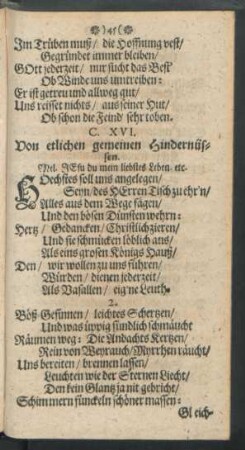 )45(
Im Trüben muß/ die Hoffnung vest/
Gegründet immer bleiben/
GOtt jederzeit/ nur sucht das Best'
Ob Winde uns umtreiben:
Er ist getreu und allweg gut/
Uns reisset nichts/ aus seiner Hut/
Ob schon die Feind' sehr toben.
C. XVI.
Von etlichen gemeinen Hindernüs-
sen.
Mel. JEsu du mein liebstes Leben/ etc.
HOechstes soll uns angelegen/
Seyn/ des HErren Tisch zu ehr'n/
Alles aus dem Wege fägen/
Und den bösen Dünsten wehrn:
Hertz/ Gedancken/ Christlich zieren/
Und sie schmücken löblich aus/
Als eins grosen Königs Hauß/
Den/ wir wollen zu uns führen/
Würden/ dienen jederzeit/
Als Vasallen/ eig'ne Leuth.
2.
Böß-Gesinnen/ leichtes Schertzen/
Und was üppig sündlich schmäucht
Räumen weg: Die Andachts Kertzen/
Rein von Weyrauch/ Myrrhen räucht/
Uns bereiten/ brennen lassen/
Leuchten wie der Sternen Liecht/
Den kein Glantz ja nit gebricht/
Schimmern fünckeln schöner massen:
Gleich-